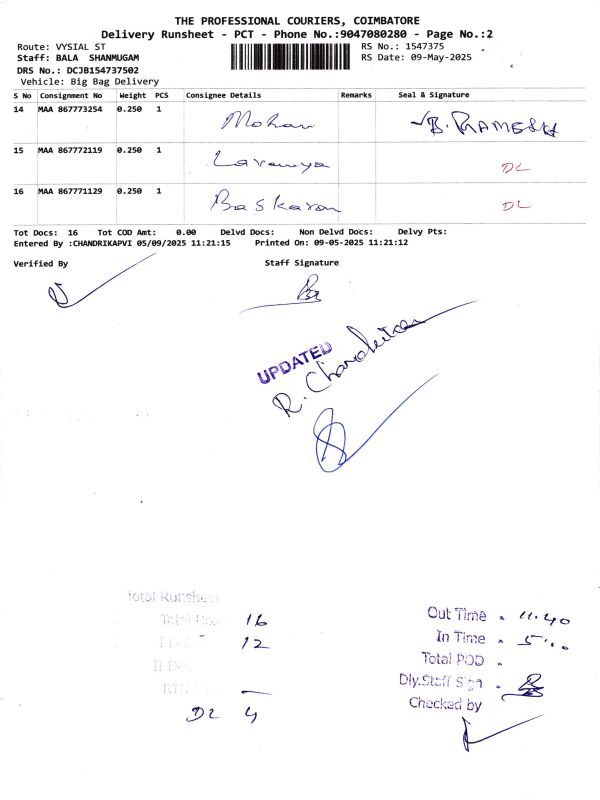 THE PROFESSIONAL COURIERS, COIMBATORE
Delivery Runsheet - PCT - Phone No.:9047080280 - Page No.:2
Route: VYSIAL ST RS No.: 1547375
Staff: BALA SHANMUGAM RS Date: 09-May-2025
DRS No.: DCJB154737502
Vehicle: Big Bag Delivery
S No Consignment No Weight PCS Consignee Details Remarks Seal & Signature
14 MAA 867773254 0.250 1 Mohan B. RAMESH
15 MAA 867772119 0.250 1 Lavanya DL
16 MAA 867771129 0.250 1 Baskaran DL
Tot Docs: 16 Tot COD Amt: 0.00 Delvd Docs: Non Delvd Docs: Delvy Pts:
Entered By :CHANDRIKAPVI 05/09/2025 11:21:15 Printed On: 09-05-2025 11:21:12
Verified By Staff Signature
UPDATED
R. Chandrika
Total Runsheet
Total 16 Out Time 11.40
12 In Time
Total POD
Dly.Staff Sign
DL 4 Checked by